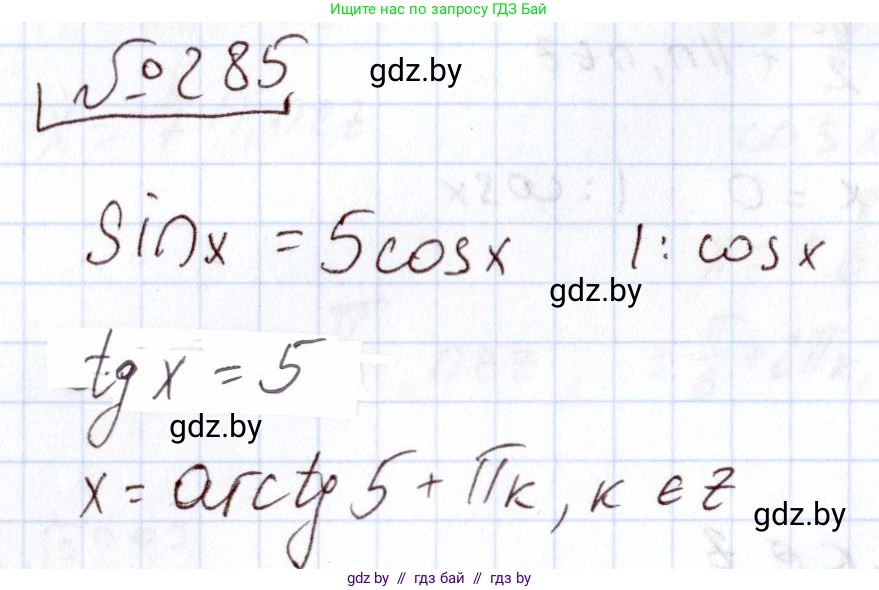 Ищите нас по запросу ГДЗ Бай
№285
gdz.by
sin x = 5cos x | : cos x
gdz.by
tg x = 5
gdz.by
x = arctg 5 + πк, к ∈ z
gdz.by
gdz by // гдз бай // gdz by